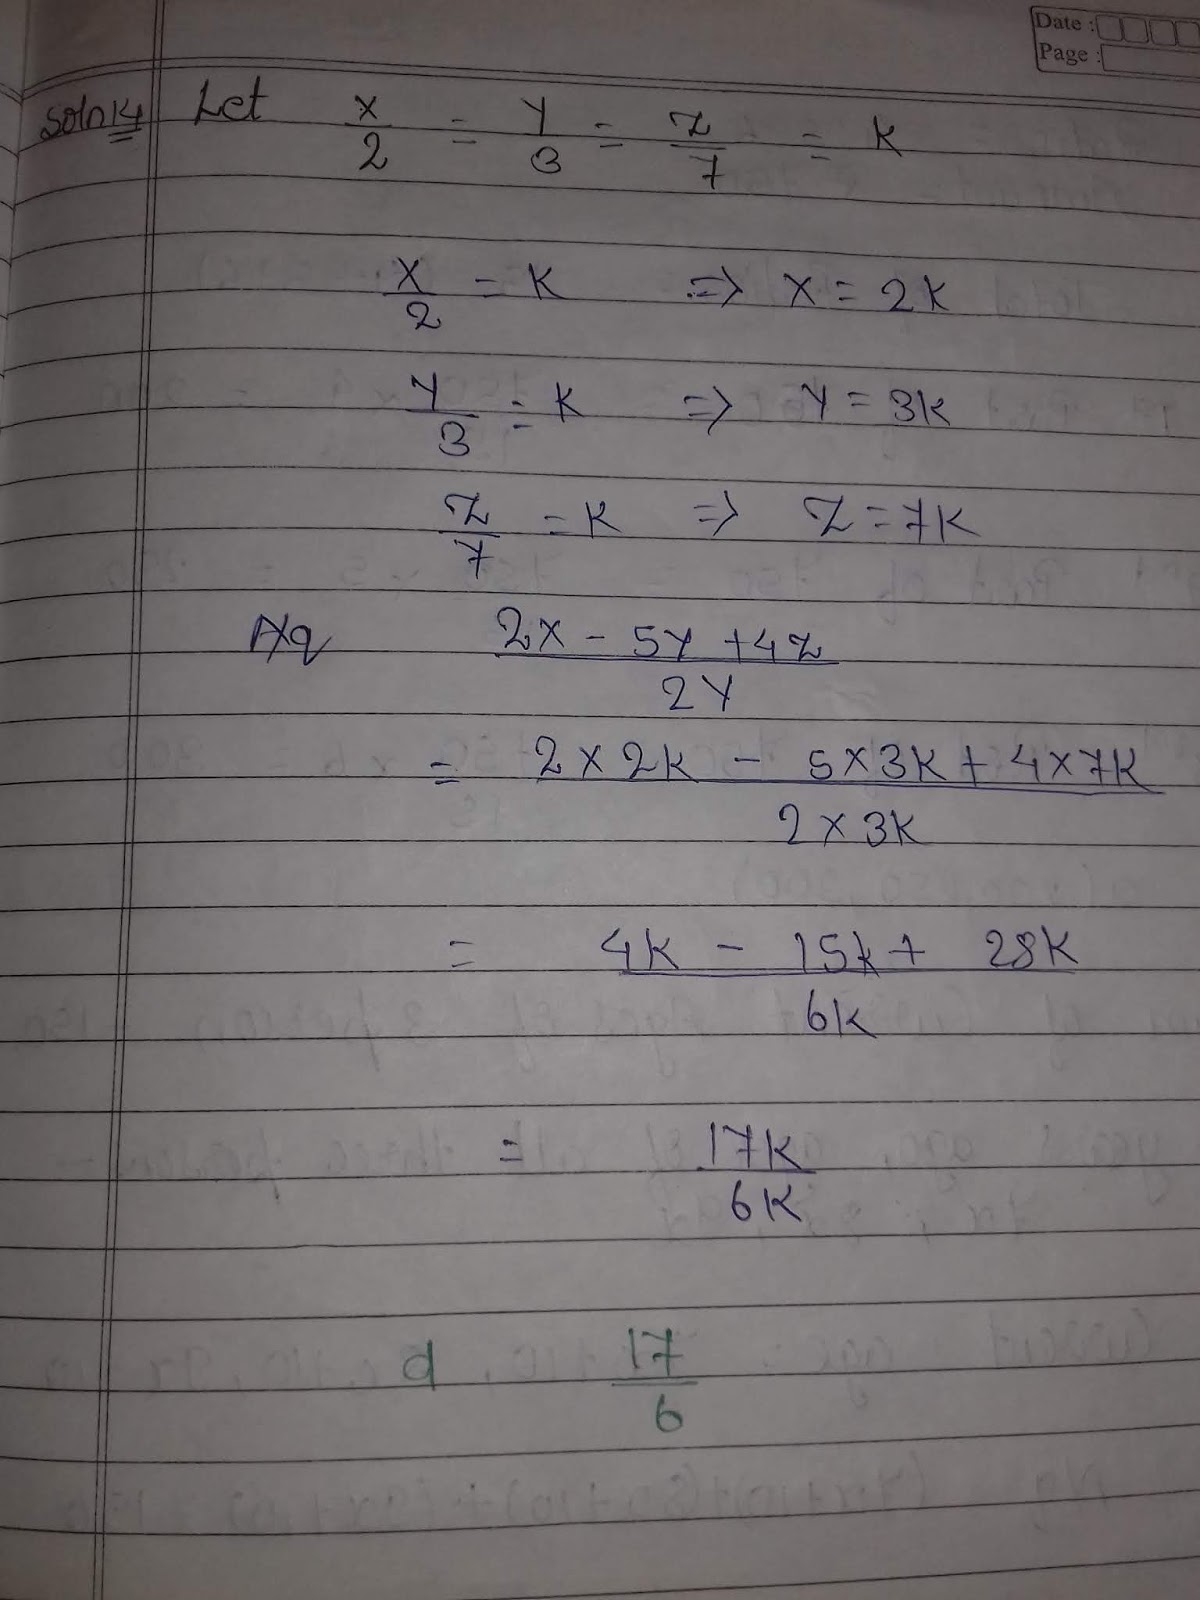 Date :
Page :
Soln14 Let x/2 = y/3 = z/7 = k
x/2 = k => x = 2k
y/3 = k => y = 3k
z/7 = k => z = 7k
Aq 2x - 5y + 4z / 2y
= 2 × 2k - 5×3k + 4×7k / 2 × 3k
= 4k - 15k + 28k / 6k
= 17k / 6k
d 17/6